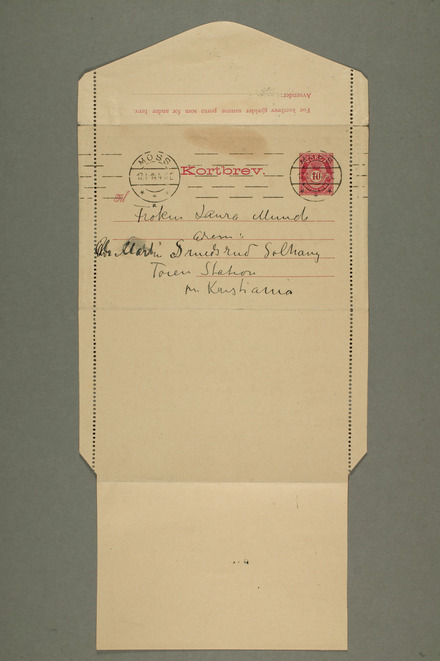 For kortbrev gjælder samme porto som for andre brev.
Avsender:
MOSS
Kortbrev.
10
Til
Frøken Laura Munch
adr.
Martin Smedsrud Solhaug
Station
pr Kristiania